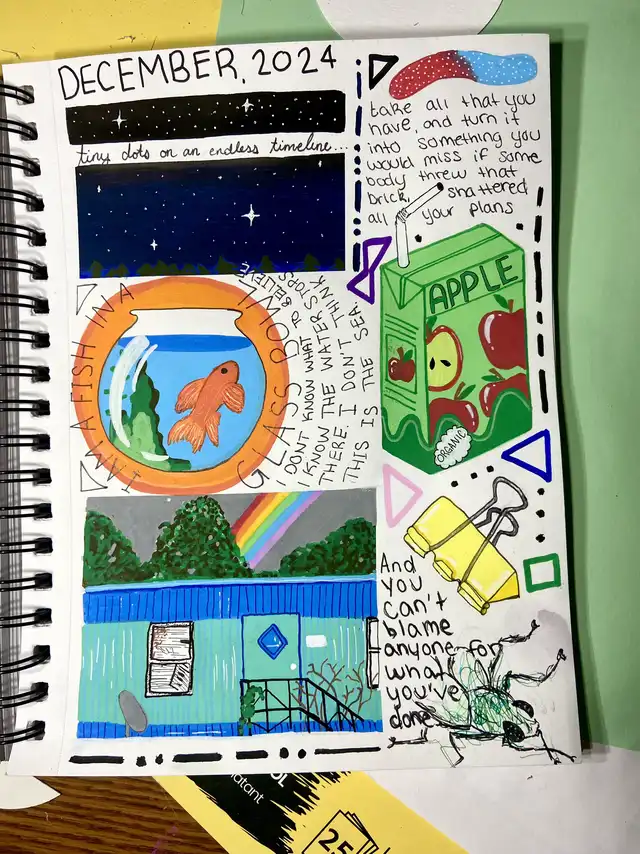 DECEMBER, 2024
tiny dots on an endless timeline...
take all that you
have, and turn it
into something you
would miss if some
body threw that
brick, shattered
all your plans
APPLE
ORGANIC
I'M A FISH IN A
GLASS BOWL
I DONT KNOW WHAT TO BELIEVE
I KNOW THE WATER STOPS
THERE. I DON'T THINK
THIS IS THE SEA.
And
you
can't
blame
anyone for
what
you've
done
OL
latant
25